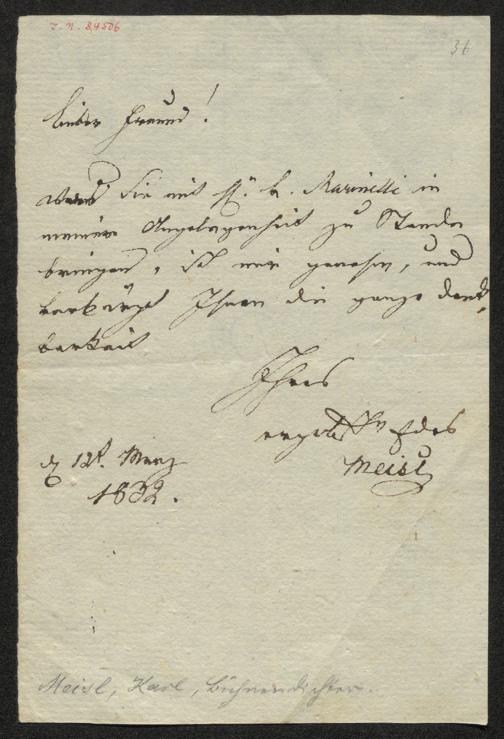 I. N. 84506
36
Lieber Freund!
Was Sie mit H. v. Marinelli in
meiner Angelegenheit zu Stande
bringen, ist mir genehm, und
verbürgt Ihnen die ganze Dank-
barkeit
Ihres
ergebsten
Meisl
12t. März
1832.
Meisl, Karl, Bühnendichter.